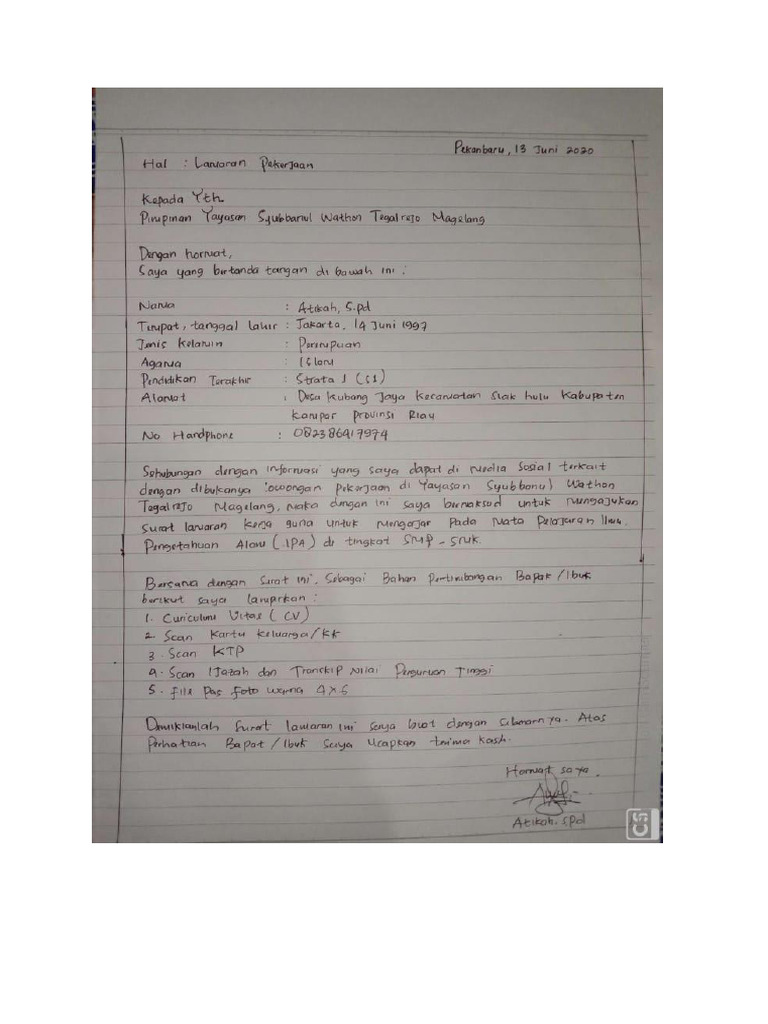 Pekanbaru, 13 Juni 2020
Hal : Lamaran Pekerjaan
Kepada Yth.
Pimpinan Yayasan Syubbanul Wathon Tegalrejo Magelang
Dengan hormat,
Saya yang bertanda tangan di bawah ini :
Nama : Atikah, S.pd
Tempat, tanggal lahir : Jakarta, 14 Juni 1997
Jenis Kelamin : Perempuan
Agama : Islam
Pendidikan Terakhir : Strata 1 (S1)
Alamat : Desa Kubang Jaya Kecamatan Siak hulu Kabupaten
Kampar Provinsi Riau
No Handphone : 082386417974
Sehubungan dengan informasi yang saya dapat di media Sosial terkait
dengan dibukanya lowongan pekerjaan di Yayasan Syubbonul Wathon
Tegalrejo Magelang, maka dengan ini saya bermaksud untuk mengajukan
surat lamaran kerja guna untuk mengajar pada mata pelajaran Ilmu
Pengetahuan Alam (IPA) di tingkat SMP - SMK.
Bersama dengan surat ini, sebagai Bahan Pertimbangan Bapak/Ibuk
berikut saya lampirkan :
1. Curiculum Vitae (CV)
2. Scan Kartu Keluarga/KK
3. Scan KTP
4. Scan Ijazah dan Transkip Nilai Perguruan Tinggi
5. File Pas Foto warna 4x6
Demikianlah surat lamaran ini saya buat dengan sebenarnya. Atas
Perhatian Bapak/Ibuk saya ucapkan terima kasih.
Hormat saya,
Atikah, S.pd
CS